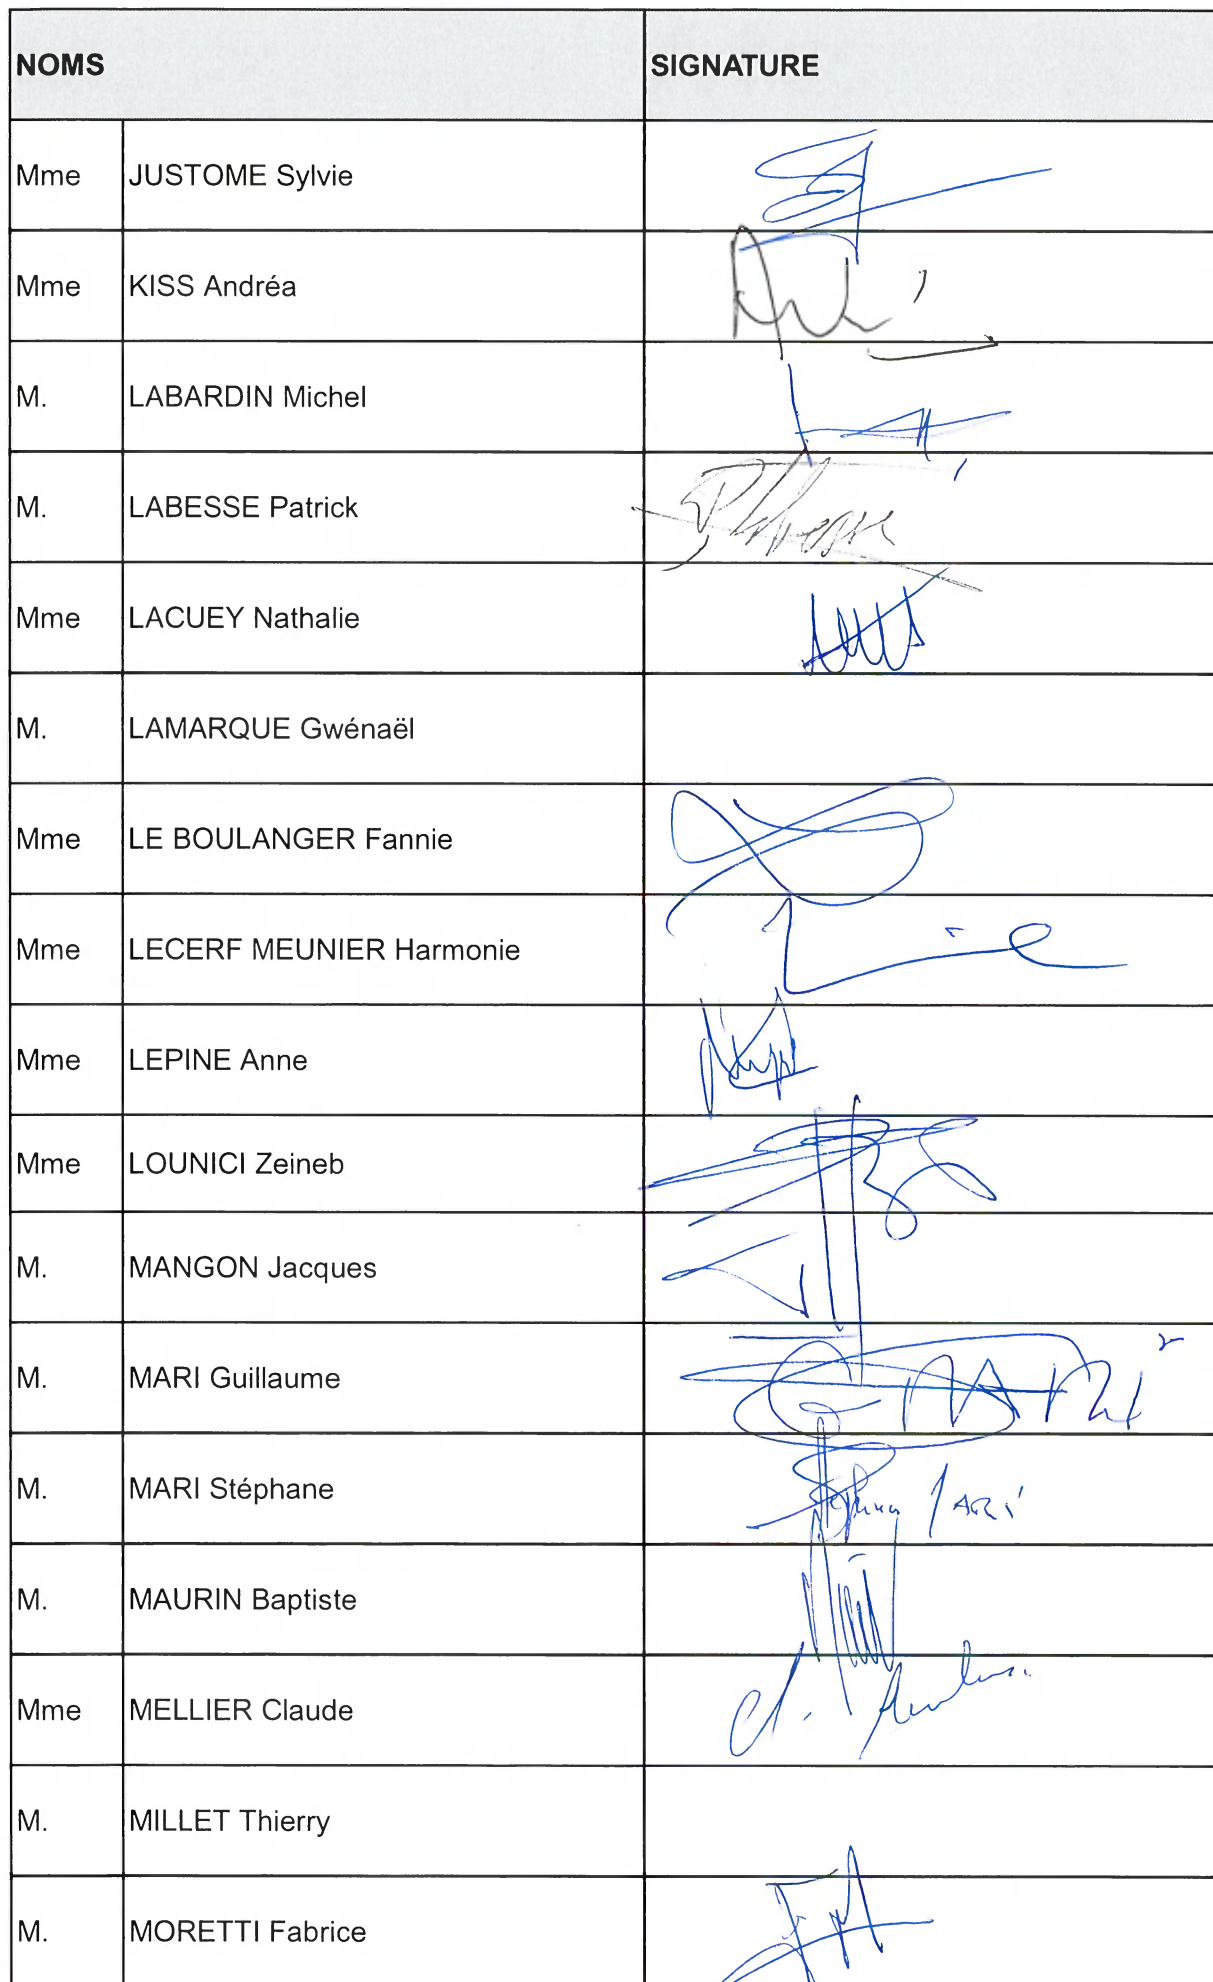 NOMS SIGNATURE
Mme JUSTOME Sylvie
Mme KISS Andréa
M. LABARDIN Michel
M. LABESSE Patrick
Mme LACUEY Nathalie
M. LAMARQUE Gwénaël
Mme LE BOULANGER Fannie
Mme LECERF MEUNIER Harmonie
Mme LEPINE Anne
Mme LOUNICI Zeineb
M. MANGON Jacques
M. MARI Guillaume
M. MARI Stéphane
M. MAURIN Baptiste
Mme MELLIER Claude
M. MILLET Thierry
M. MORETTI Fabrice